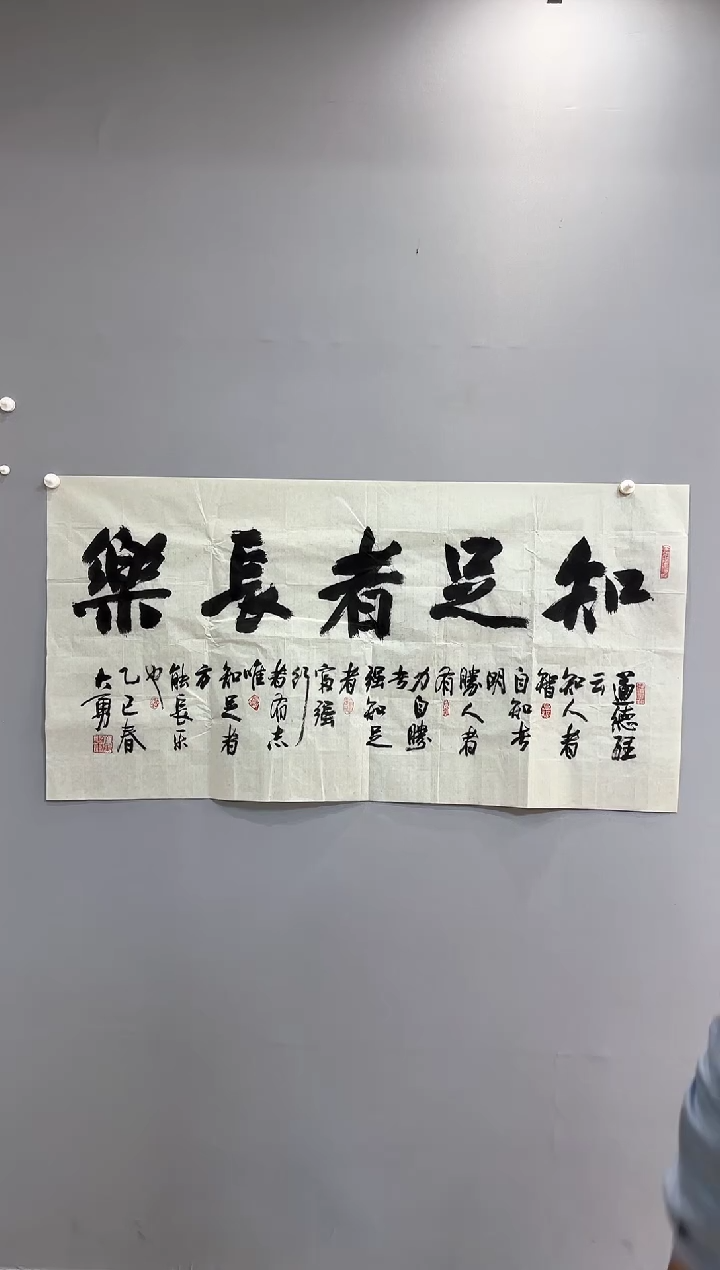 知足者長樂
道德經
云
知人者
智
自知者
明
勝人者
有
力自勝
者
强知足
者
富强
行
者有志
唯
知足者
方
能長乐
也
乙巳春
大勇